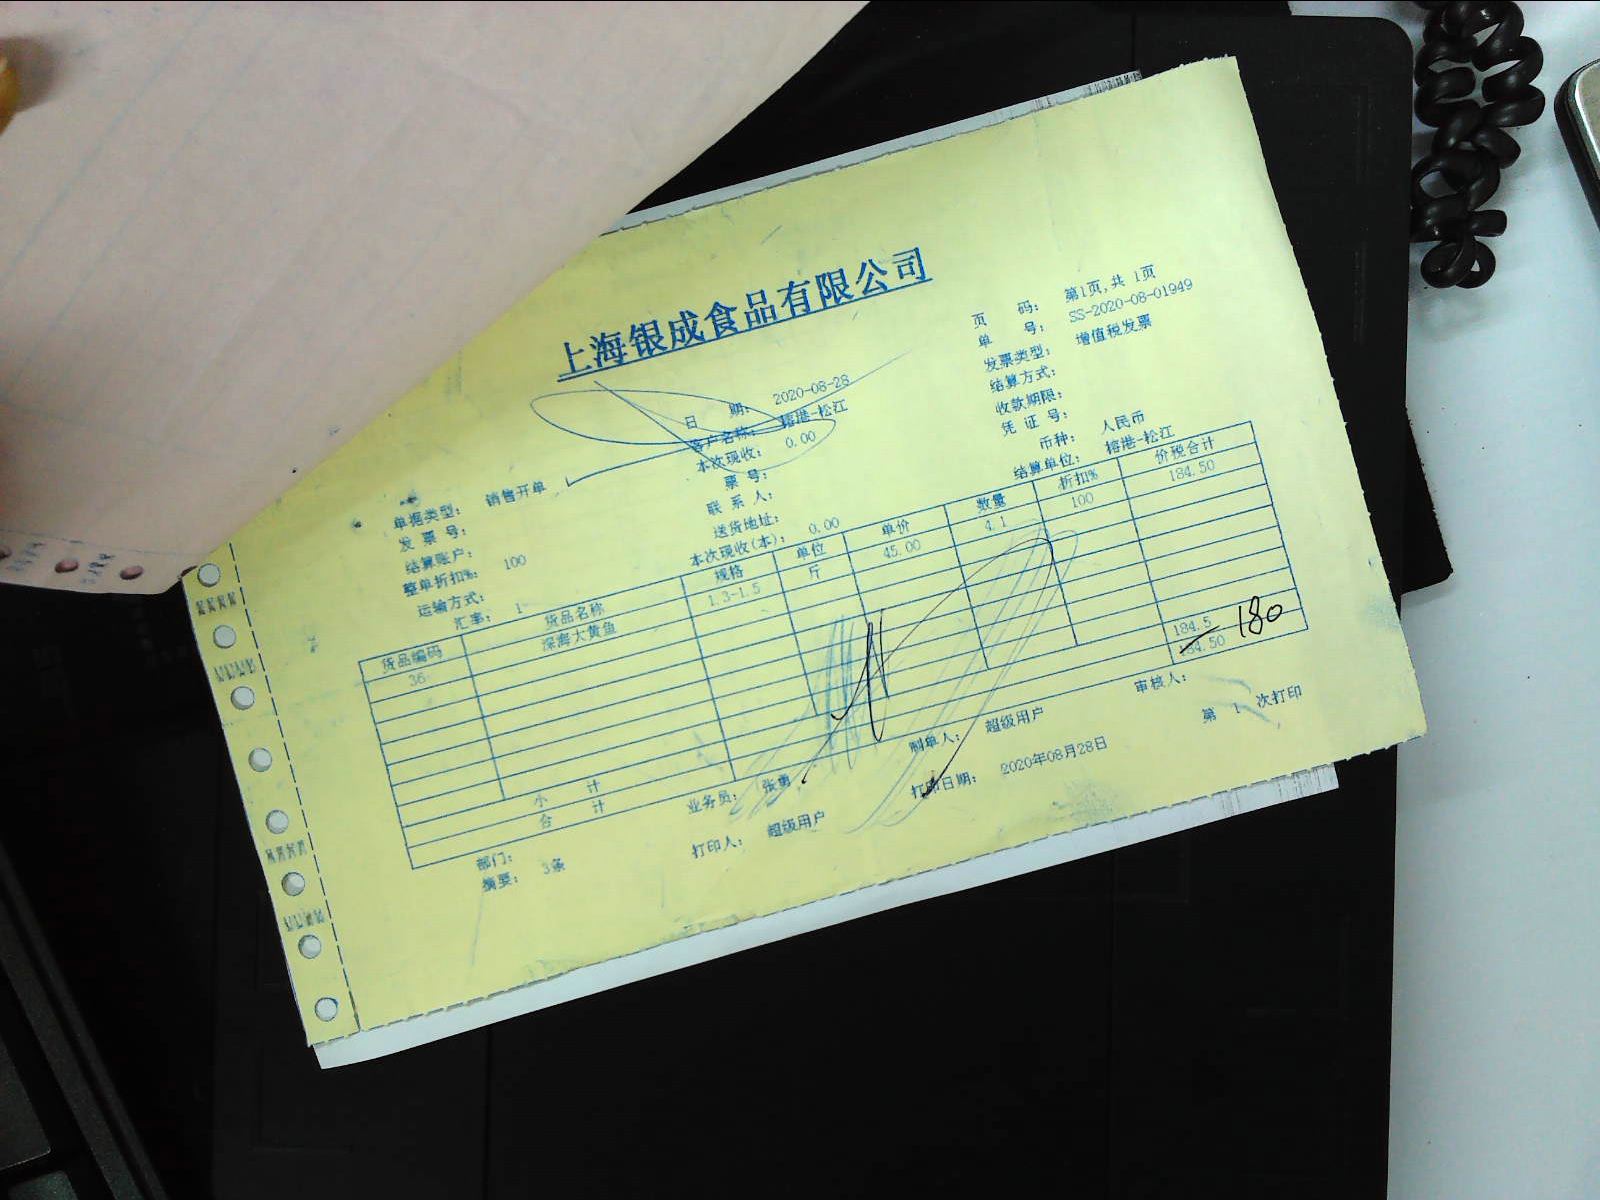 上海银成食品有限公司
页 码: 第1页,共 1页
单 号: SS-2020-08-01949
日 期: 2020-08-28
发票类型: 增值税发票
客户名称: 榕港-松江
结算方式:
本次现收: 0.00
收款期限:
单据类型: 销售开单
票 号:
凭 证 号:
发 票 号:
联 系 人:
币种: 人民币
结算账户:
送货地址:
结算单位: 榕港-松江
整单折扣%: 100
本次现收(本): 0.00
运输方式:
汇率: 1
货品编码 货品名称 规格 单位 单价 数量 折扣% 价税合计
36 深海大黄鱼 1.3-1.5 斤 45.00 4.1 100 184.50
小 计 184.5
合 计 184.50
180
部门: 业务员: 张勇 制单人: 超级用户 审核人:
摘要: 3条 打印人: 超级用户 打印日期: 2020年08月28日 第 1 次打印